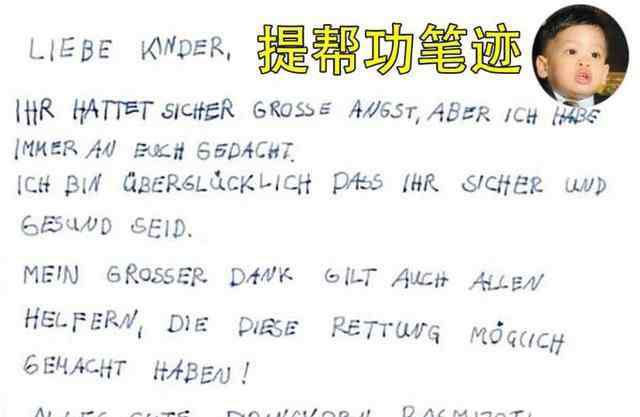 LIEBE KINDER,
提帮功笔迹
IHR HATTET SICHER GROSSE ANGST, ABER ICH HABE
IMMER AN EUCH GEDACHT.
ICH BIN ÜBERGLÜCKLICH DASS IHR SICHER UND
GESUND SEID.
MEIN GROSSER DANK GILT AUCH ALLEN
HELFERN, DIE DIESE RETTUNG MÖGLICH
GEMACHT HABEN!
ALLES GUTE